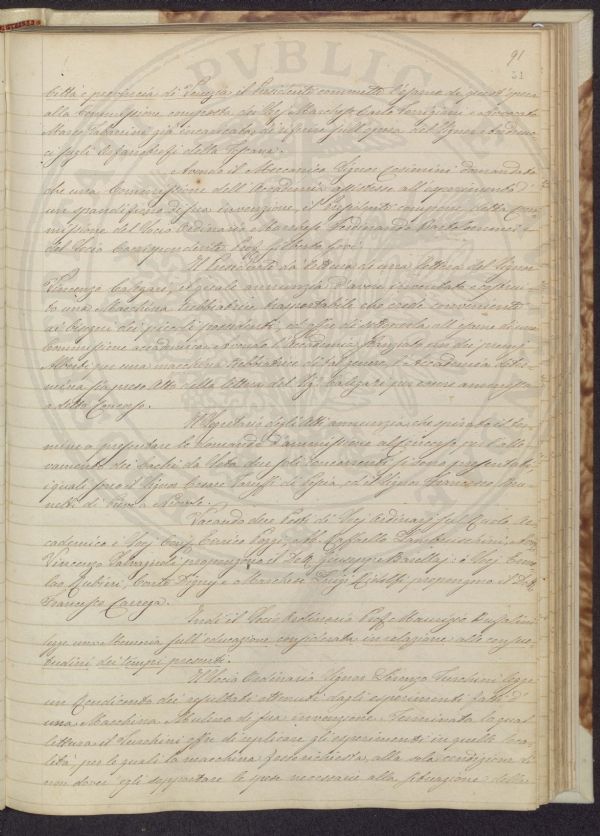 91
51
città e provincia di Venezia il Presidente commette l'esame di quest'opera
alla Commissione composta dei Socj Marchese Carlo Torrigiani e Avvocato
Marco Tabarrini già incaricata di riferire sull'opera del Signor
ci sugli Orfanotrofi della Toscana.
Avendo il Meccanico Signor Cosimini domandato
che una Commissione dell'Accademia assistesse all'esperimento d'
un di sua invenzione, il Presidente compone detta Com
missione del Socio Ordinario Marchese Ferdinando Bartolommei e
del Socio Corrispondente Prof. Gilberto Govi.
Il Presidente dà lettura di una lettera del Signor
Vincenzo Calegari, il quale annunzia d'avere inventato e costrui
to una Macchina trebbiatrice trasportabile che crede conveniente
ai bisogni dei piccoli possidenti, ed offre di sottoporla all'esame di una
Commissione accademica e avendo l'Accademia fregiato uno dei premj
Alberti per una macchina trebbiatrice di tal genere, l'Accademia deter=
mina sia preso atto della lettera del Sig. Calegari per essere ammesso
a detto Concorso.
Il Segretario degli Atti annunzia che spirato il ter
mine a presentare le domande d'ammissione al concorso per l'alle
vamento dei bachi da Seta due soli concorrenti si sono presentati,
i quali sono il Signor Cesare Taruffi di Sofia, ed il Signor Francesco Bru
netti di Pieve a Nievole.
Vacando due Posti di Socj Ordinarj sul Ruolo Ac
cademico i Socj Cav. Enrico Poggi, Ab. Raffaello Lambruschini e Avv.
Vincenzo Salvagnoli propongono il Dott. Giuseppe Barellai; e i Socj Ermo
lao Rubieri, Conte Digny e Marchese Luigi Ridolfi propongono il Dott.
Francesco Carrega.
Indi il Socio Ordinario Prof. Maurizio Bufalini
legge una Memoria sull'educazione considerata in relazione alle consue
tudini dei tempi presenti.
Il Socio Ordinario Signor Lorenzo Turchini legge
un Rendiconto dei resultati ottenuti dagli esperimenti fatti d'
una Macchina Mulino di sua invenzione. Terminata la qual
lettura il Turchini offre di replicare gli esperimenti in quelle loca
lità per le quali la macchina fosse richiesta, alla sola condizione di
non dover egli sopportare le spese necessarie alla situazione della